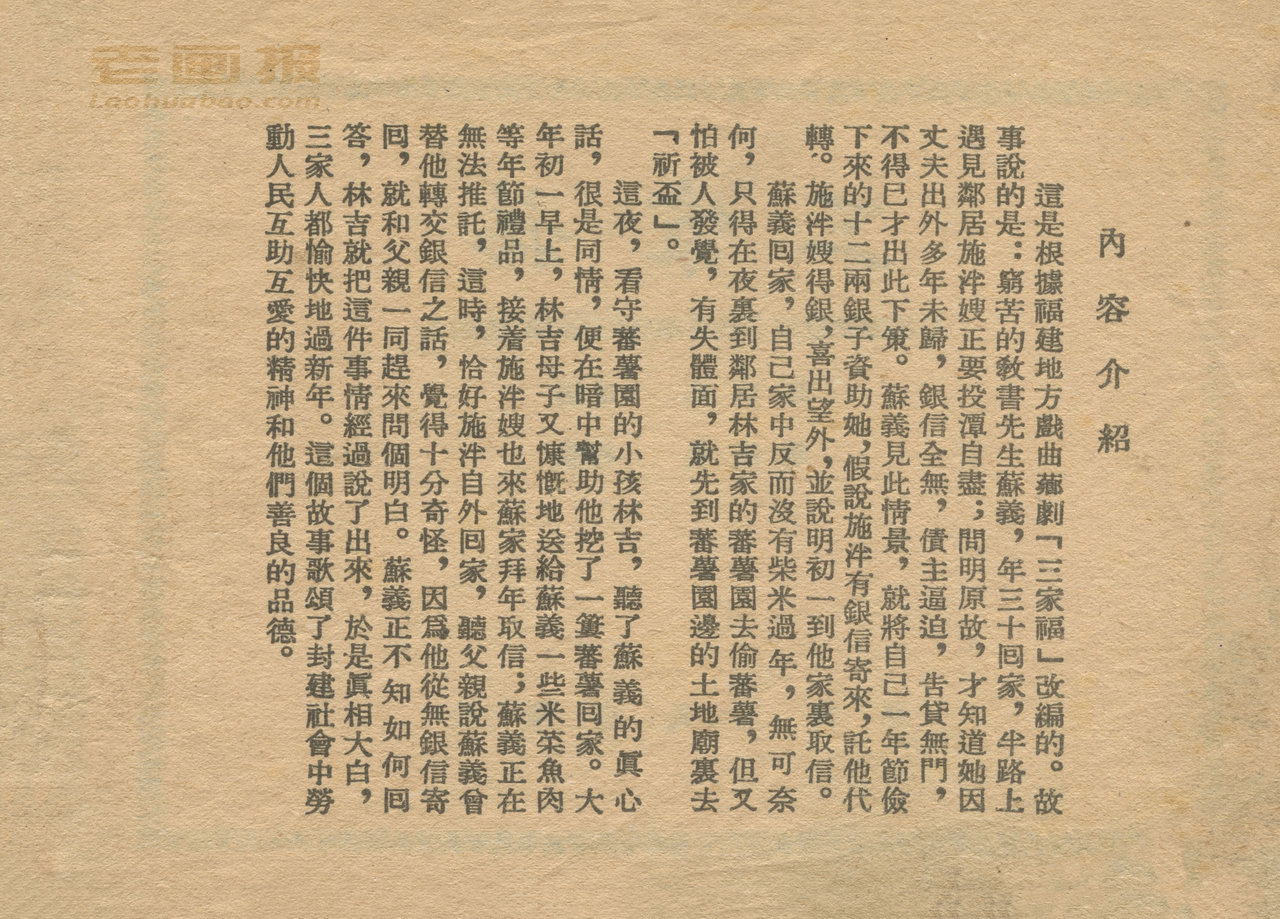 老画报
laohuabao.com
內容介紹
這是根據福建地方戲曲薌劇「三家福」改編的。故
事說的是：窮苦的敎書先生蘇義，年三十回家，半路上
遇見鄰居施泮嫂正要投潭自盡；問明原故，才知道她因
丈夫出外多年未歸，銀信全無，債主逼迫，告貸無門，
不得已才出此下策。蘇義見此情景，就將自己一年節儉
下來的十二兩銀子資助她，假說施泮有銀信寄來，託他代
轉。施泮嫂得銀，喜出望外，並說明初一到他家裏取信。
蘇義回家，自己家中反而沒有柴米過年，無可奈
何，只得在夜裏到鄰居林吉家的蕃薯園去偷蕃薯，但又
怕被人發覺，有失體面，就先到蕃薯園邊的土地廟裏去
「祈盃」。
這夜，看守蕃薯園的小孩林吉，聽了蘇義的眞心
話，很是同情，便在暗中幫助他挖了一簍蕃薯回家。大
年初一早上，林吉母子又慷慨地送給蘇義一些米菜魚肉
等年節禮品，接着施泮嫂也來蘇家拜年取信；蘇義正在
無法推託，這時，恰好施泮自外回家，聽父親說蘇義曾
替他轉交銀信之話，覺得十分奇怪，因爲他從無銀信寄
回，就和父親一同趕來問個明白。蘇義正不知如何回
答，林吉就把這件事情經過說了出來，於是眞相大白，
三家人都愉快地過新年。這個故事歌頌了封建社會中勞
動人民互助互愛的精神和他們善良的品德。